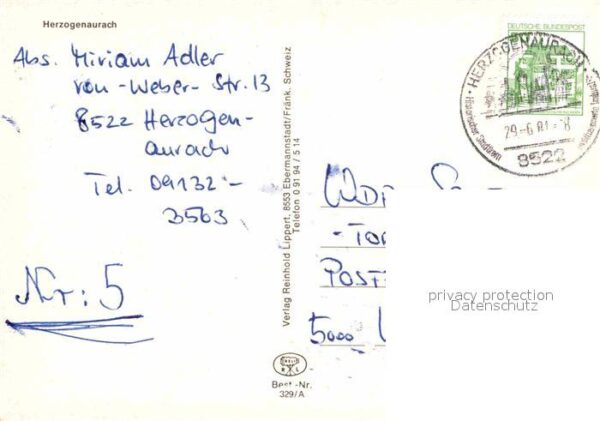 Herzogenaurach
Abs. Miriam Adler
von-Weber-Str. 13
8522 Herzogen-
aurach
Tel. 09132-
3563
Nr: 5
Verlag Reinhold Lippert, 8553 Ebermannstadt/Fränk. Schweiz
Telefon 0 91 94 / 5 14
R L
Best.-Nr.
329/A
DEUTSCHE BUNDESPOST
HERZOGENAURACH
29.-6.81.-8
8522
WDR
POST
5000
privacy protection
Datenschutz